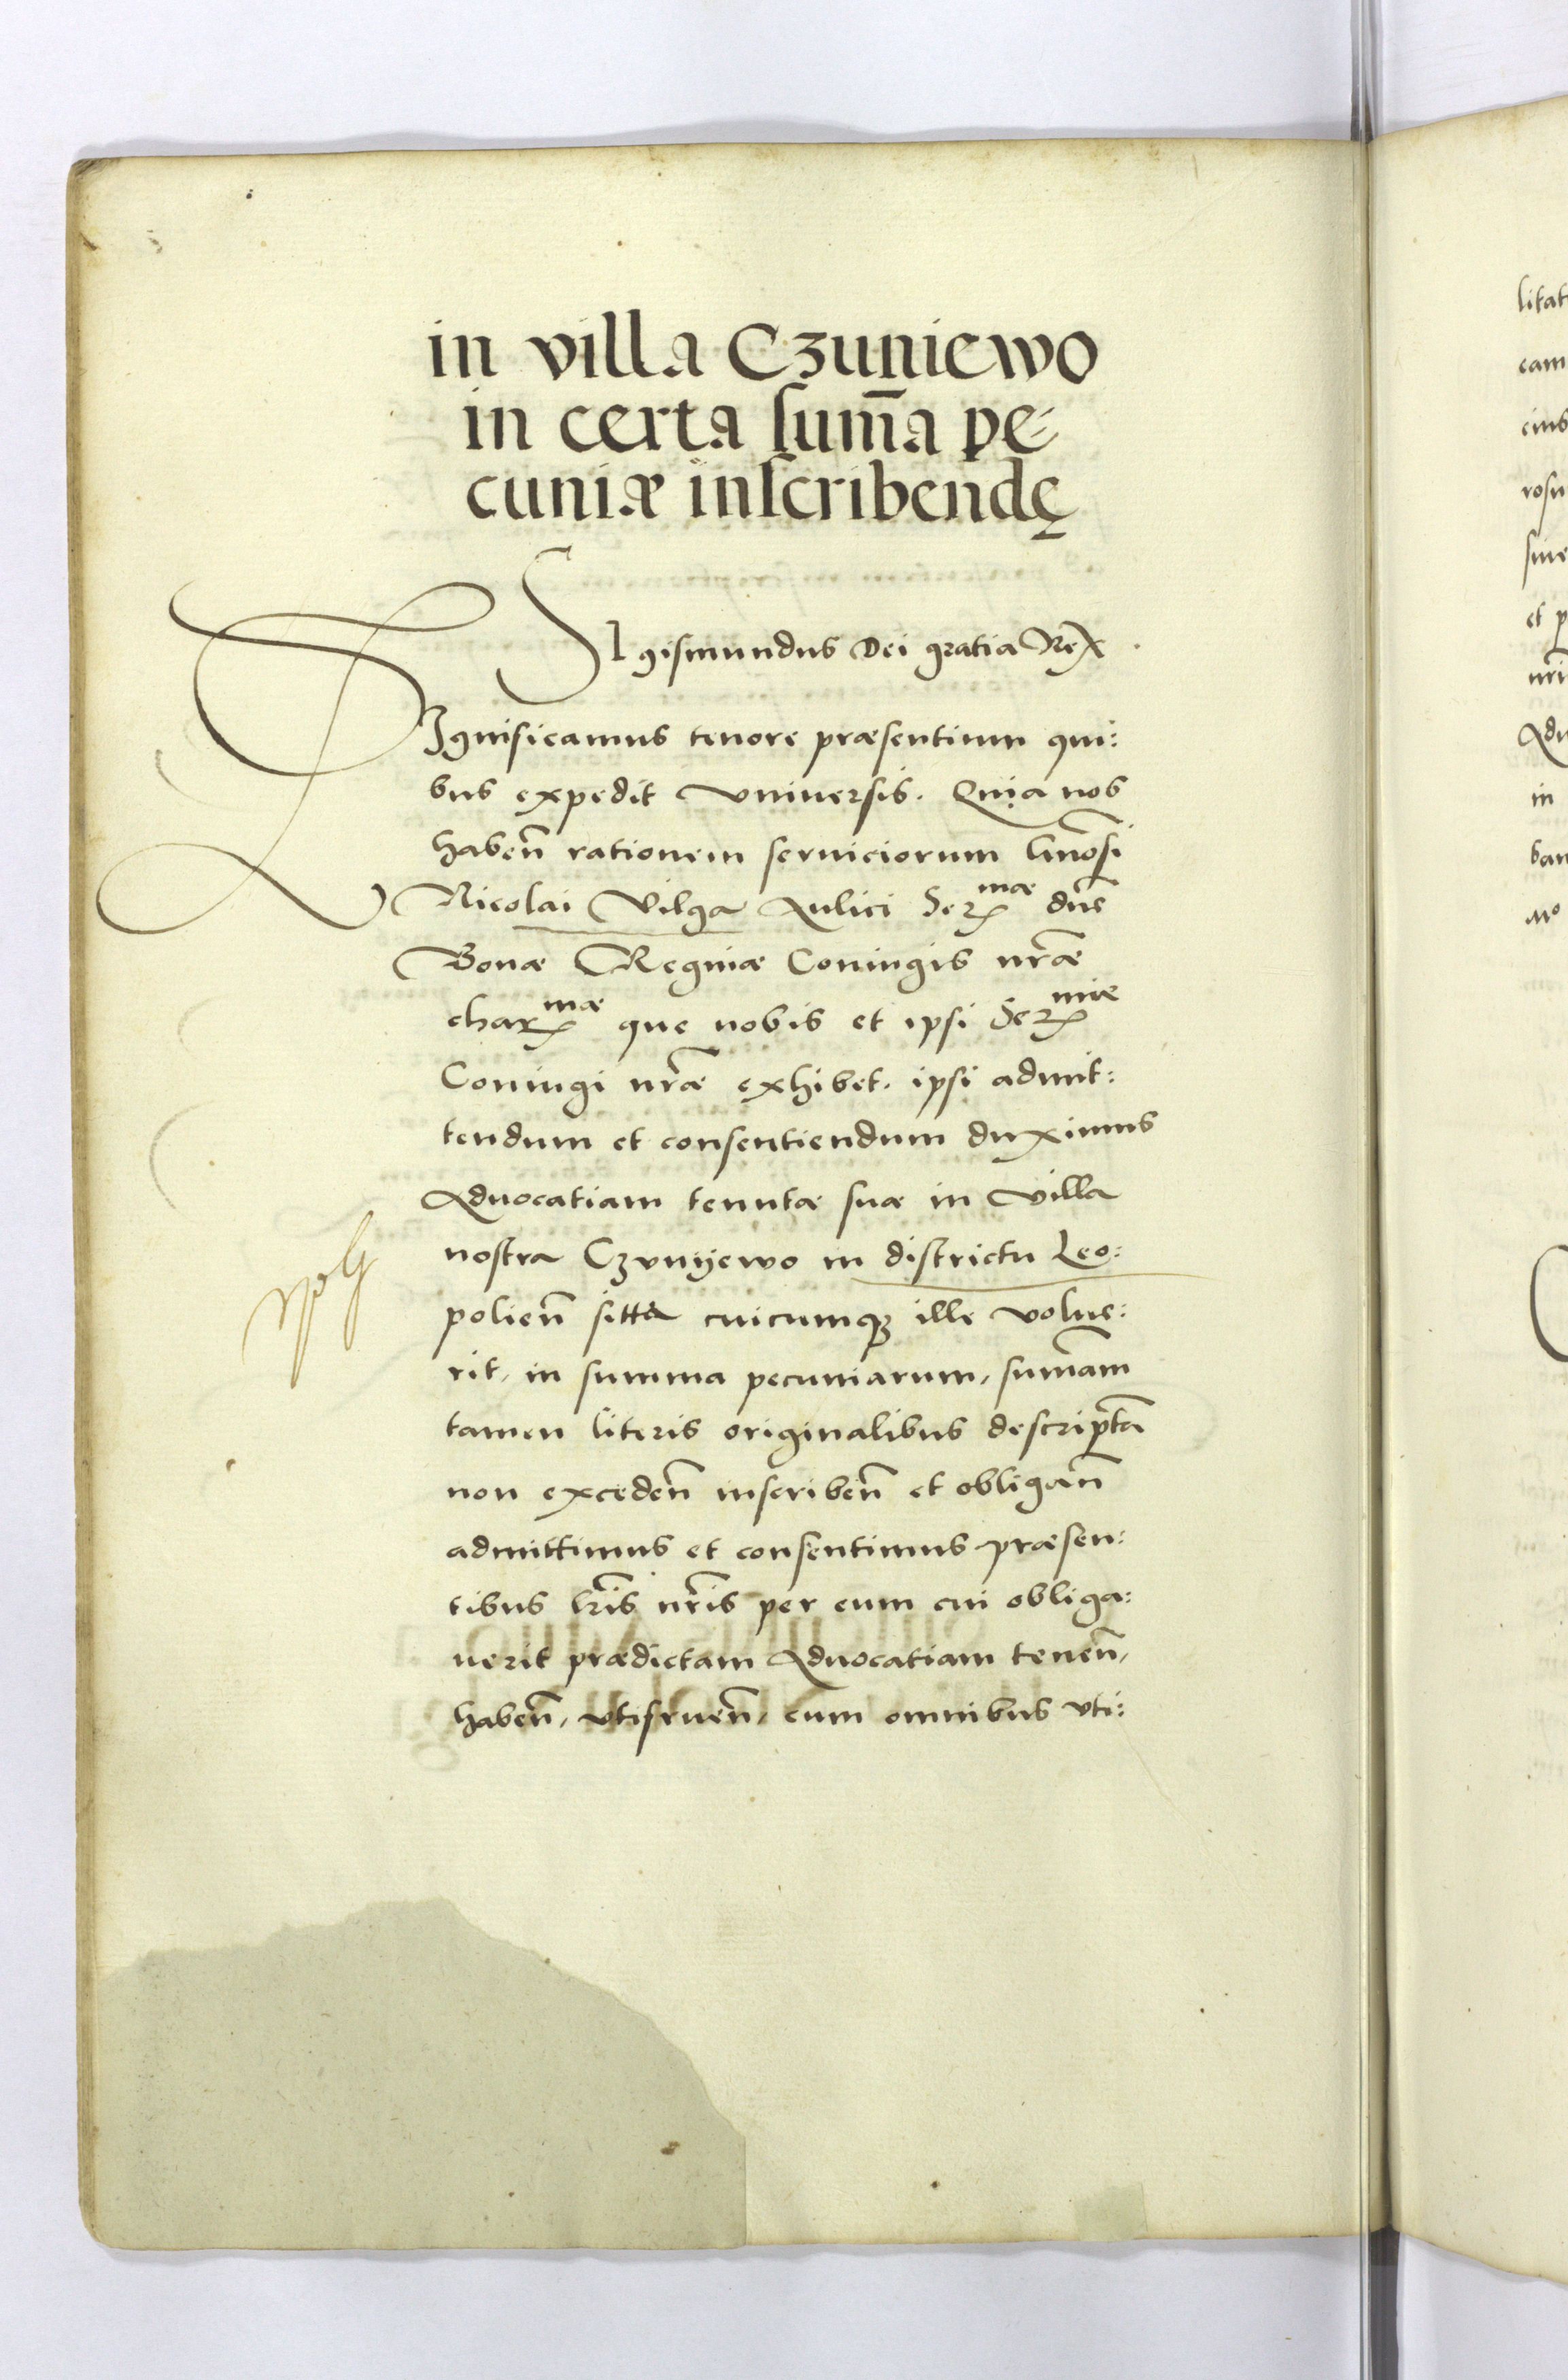 in villa Czuniewo
in certa sum̄a pe⸗
cuniæ inscribendę
SIgismundus Dei gratia Rex
SIgnificamus tenore præsentium qui:
bus expedit vniuersis. Quia nos
haben̄ rationem seruiciorum Gn̄osi
Nicolai Vilga Aulici Sermæ dn̄e
Bonæ Reginæ Coniugis nr̄æ
charmæ que nobis et ipsi Sermæ
Coniugi nr̄æ exhibet. ipsi admit:
tendum et consentiendum duximus
Aduocatiam tenutæ suæ in Villa
nostra Czvnyewo in districtu Leo:
polien̄ sitta cuicumqȝ ille volue:
rit, in summa pecuniarum, sum̄am
tamen literis originalibus descriptā
non exceden̄ inscriben̄ et obligan̄
admittimus et consentimus præsen:
tibus lr̄is nr̄is per eum cui obliga:
uerit prædictam Aduocatiam tenen̄,
haben̄, vtifruen̄, cum omnibus vti:
litat
cam
eius
rosu
siue
et p
nr̄i
Adu
in
ban